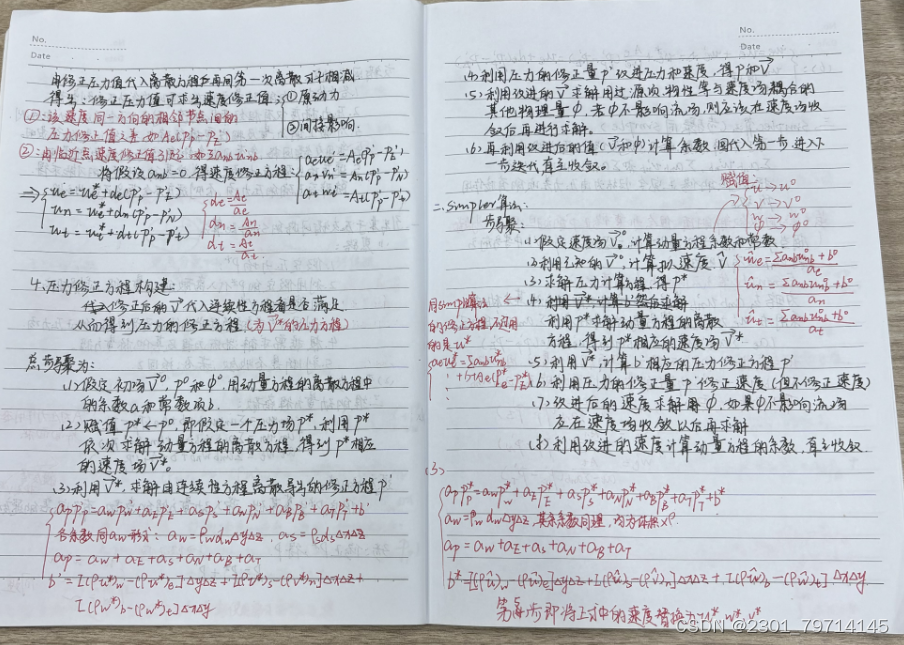 No.
Date
由修正压力值代入离散方程并再同第一次离散对十相减
得出:修正压力值可求出速度修正值:①原动力
①:该速度同一方向的相邻节点间的
压力修正值之差如Ae(P'p-P'E)
②间接影响.
②:由临近点速度修正值引起:如Σanbu'nb
将假设anb=0.得速度修正方程:
aeu'e=Ae(P'p-P'E)
anv'n=An(P'p-P'N)
atw't=At(P'p-P't)
⇒ ue=ue*+de(P'p-P'E)
un=ue*+dn(P'p-P'N)
wt=ut*+dt(P'p-P't)
de=Ae/ae
dn=An/an
dt=At/at
4.压力修正方程构建:
代入修正后的V代入连续性方程看是否满足
从而得到压力的修正方程(为V*的压力方程)
总步骤为:
(1)假定初场V⁰, P⁰和φ⁰.用动量方程的离散方程中
的系数a和常数项b.
(2)赋值P*←P⁰,即假定一个压力场P*,利用P*
依次求解动量方程的离散方程,得到P*相应
的速度场V*。
(3)利用V*求解由连续性方程离散导出的修正方程P'
aPP'P=aWP'W+aEP'E+aSP'S+aNP'N+aBP'B+aTP'T+b'
各系数同aw形式: aw=ρwdwΔyΔz, as=ρsdsΔxΔz
aP=aW+aE+aS+aN+aB+aT
b'=[(ρu*)w-(ρu*)e]ΔyΔz+[(ρv*)s-(ρv*)n]ΔxΔz+
[(ρw*)b-(ρw*)t]ΔxΔy
No.
Date
(4)利用压力的修正量P'改进压力和速度,得P和V
(5)利用改进的V*求解用过源项.物性等与速度场耦合的
其他物理量φ,若φ不影响流场,则应该在速度场收
敛后再进行求解。
(6)再利用改进后的值(V和φ)计算系数,回代入第一步,进入下
一步迭代,直至收敛。
二.Simpler算法:
步骤:
赋值:
u→u⁰
v→v⁰
w→w⁰
φ→φ⁰
(1)假定速度场V⁰,计算动量方程系数和常数
(2)利用已知的V⁰,计算拟速度V̂
ûe=(Σanbu⁰nb+b⁰)/ae
ûn=(Σanbu⁰nb+b⁰)/an
ût=(Σanbu⁰nb+b⁰)/at
(3)求解压力计算方程,得P*
(4)
利用P*求解动量方程的离散
方程,得到P*相应的速度场V*
同simple算法
的修正方程,不过用
的是u*
aeu*e=Σanbu*nb
+b+Ae(P*p-P*E)
(5)利用V*,计算b'相应的压力修正方程P'
(6)利用压力的修正量P'修正速度(但不修正速度)
(7)改进后的速度求解用φ,如果φ不影响流场
应在速度场收敛以后再求解
(8)利用改进的速度计算动量方程的系数,直至收敛
(3)
aPP*P=aWP*W+aEP*E+aSP*S+aNP*N+aBP*B+aTP*T+b*
aw=ρwdwΔyΔz,其余系数同理,均为体积xρ.
aP=aW+aE+aS+aN+aB+aT
b*=[(ρû)w-(ρû)e]ΔyΔz+[(ρv̂)s-(ρv̂)n]ΔxΔz+[(ρŵ)b-(ρŵ)t]ΔxΔy.
第五步即将上式中的速度替换为u*,w*,v*
CSDN @2301_79714145